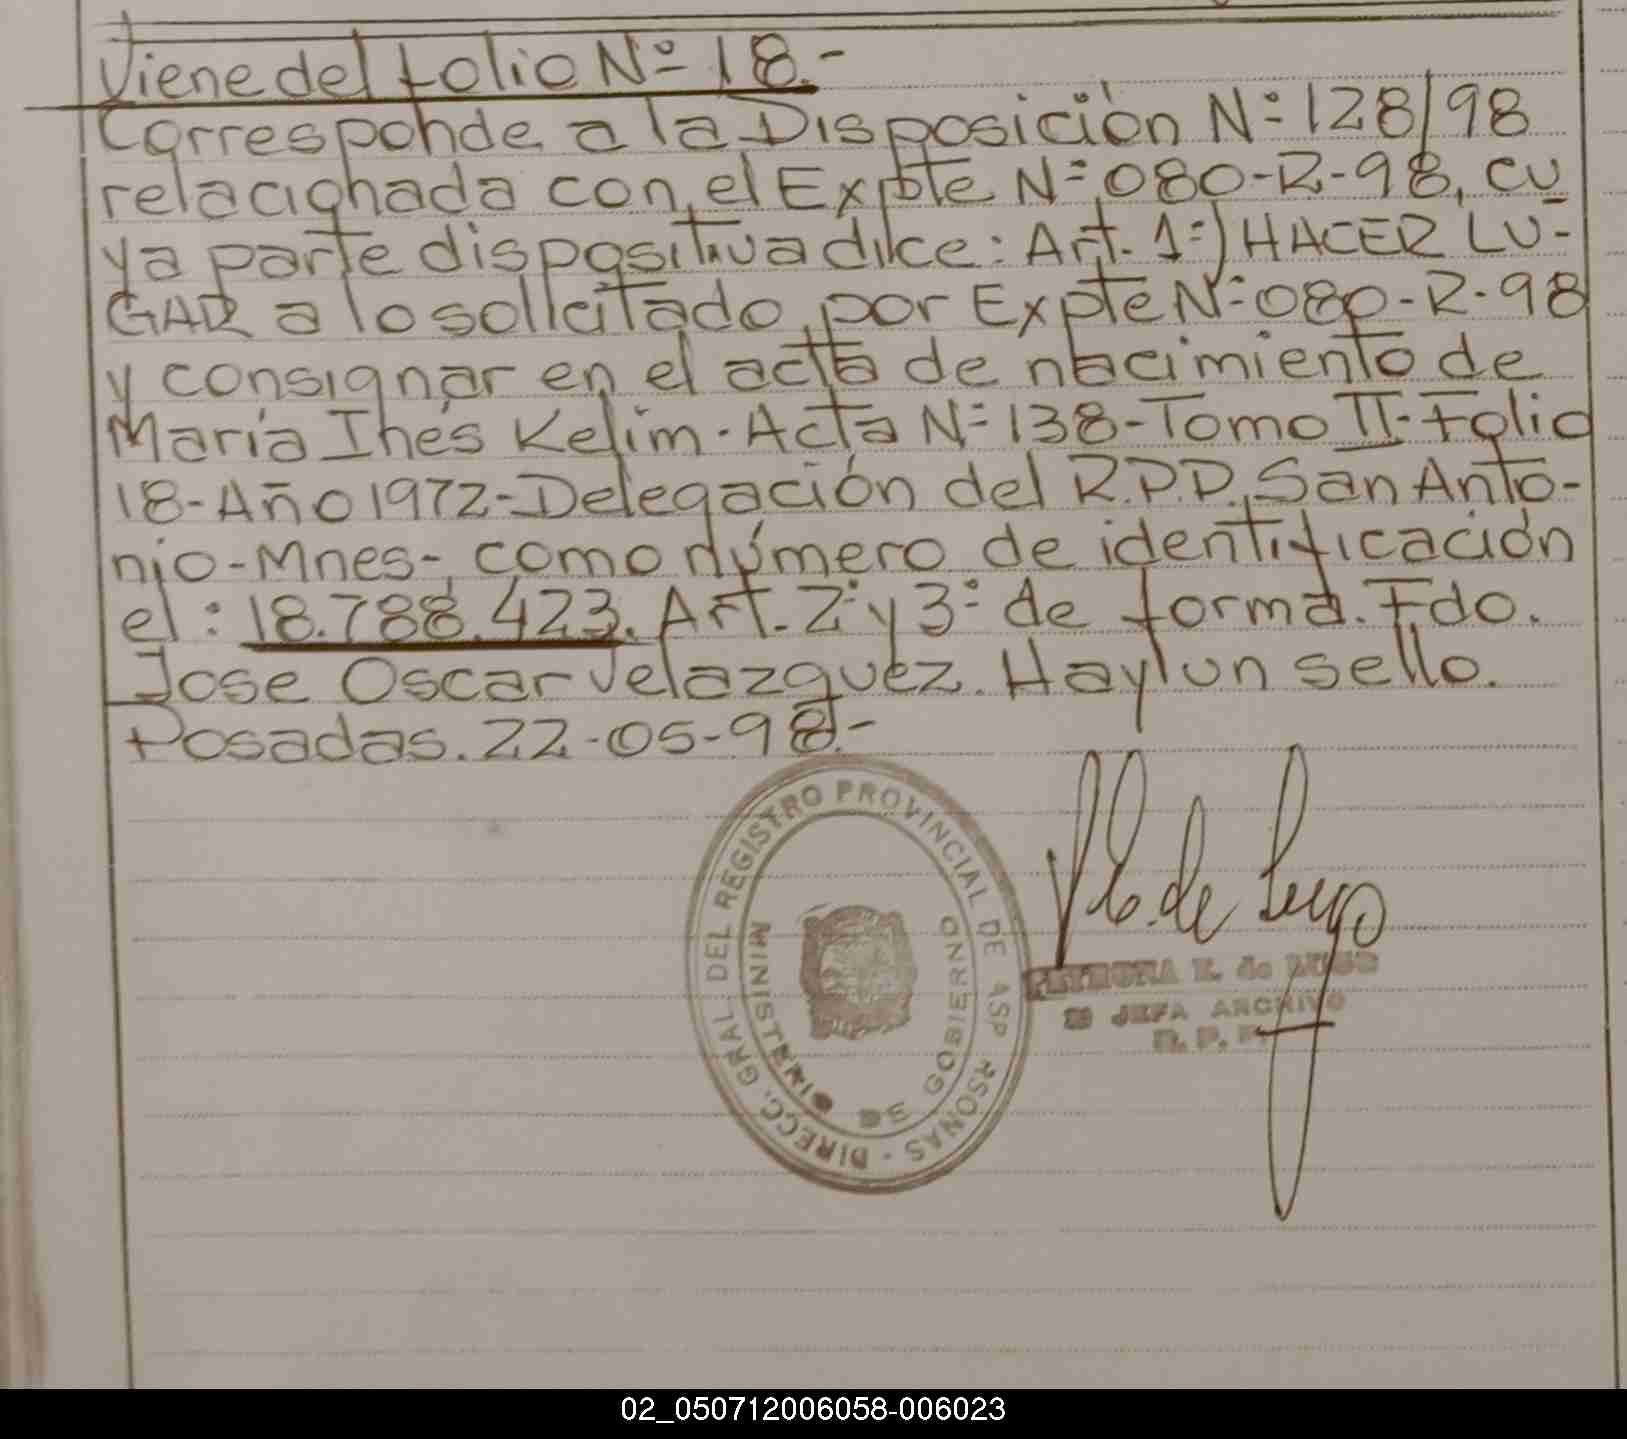 Viene del folio Nº 18.-
Corresponde a la Disposición Nº 128/98
relacionada con el Expte Nº 080-R-98, cu
ya parte dispositiva dice: Art. 1º) HACER LU-
GAR a lo solicitado por Expte Nº 080-R-98
y consignar en el acta de nacimiento de
María Inés Kelim. Acta Nº 138-Tomo II-Folio
18-Año 1972-Delegación del R.P.P. San Anto-
nio-Mnes- como número de identificación
el: 18.788.423. Art. 2º y 3º de forma. Fdo.
Jose Oscar Velazquez. Hay un sello.
Posadas. 22-05-98.-
DIRECC. GRAL. DEL REGISTRO PROVINCIAL DE ASP RSONAS -
MINISTERIO DE GOBIERNO
PETRONA K. de LUGO
JEFA ARCHIVO
R. P. P.
02_050712006058-006023